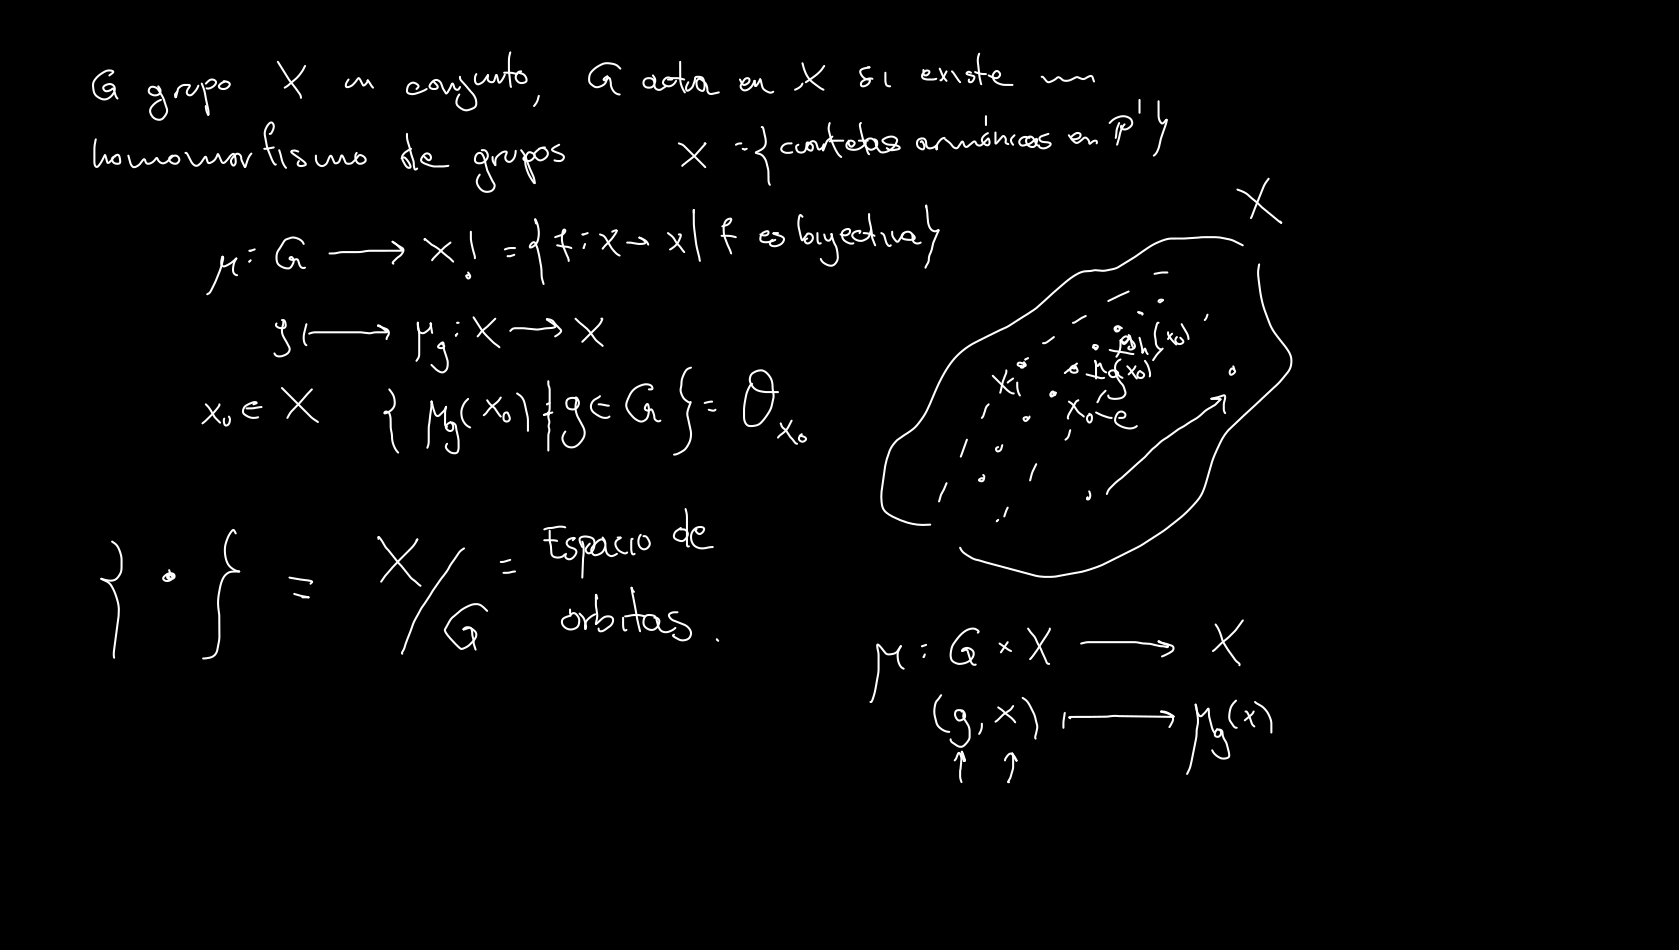 G grupo X un conjunto, G actua en X si existe un
homomorfismo de grupos X = {cuartetas armónicas en P¹}
μ: G ⟶ X! = {f: X → X | f es biyectiva}
g ⟼ μ_g: X ⟶ X
x₀ ∈ X {μ_g(x₀) | g ∈ G} = O_{x₀}
{ • } = X/G = Espacio de
órbitas.
X
gh(x₀)
x₁
g(x₀)
x₀ – e
μ: G × X ⟶ X
(g, x) ⟼ μ_g(x)
↑ ↑